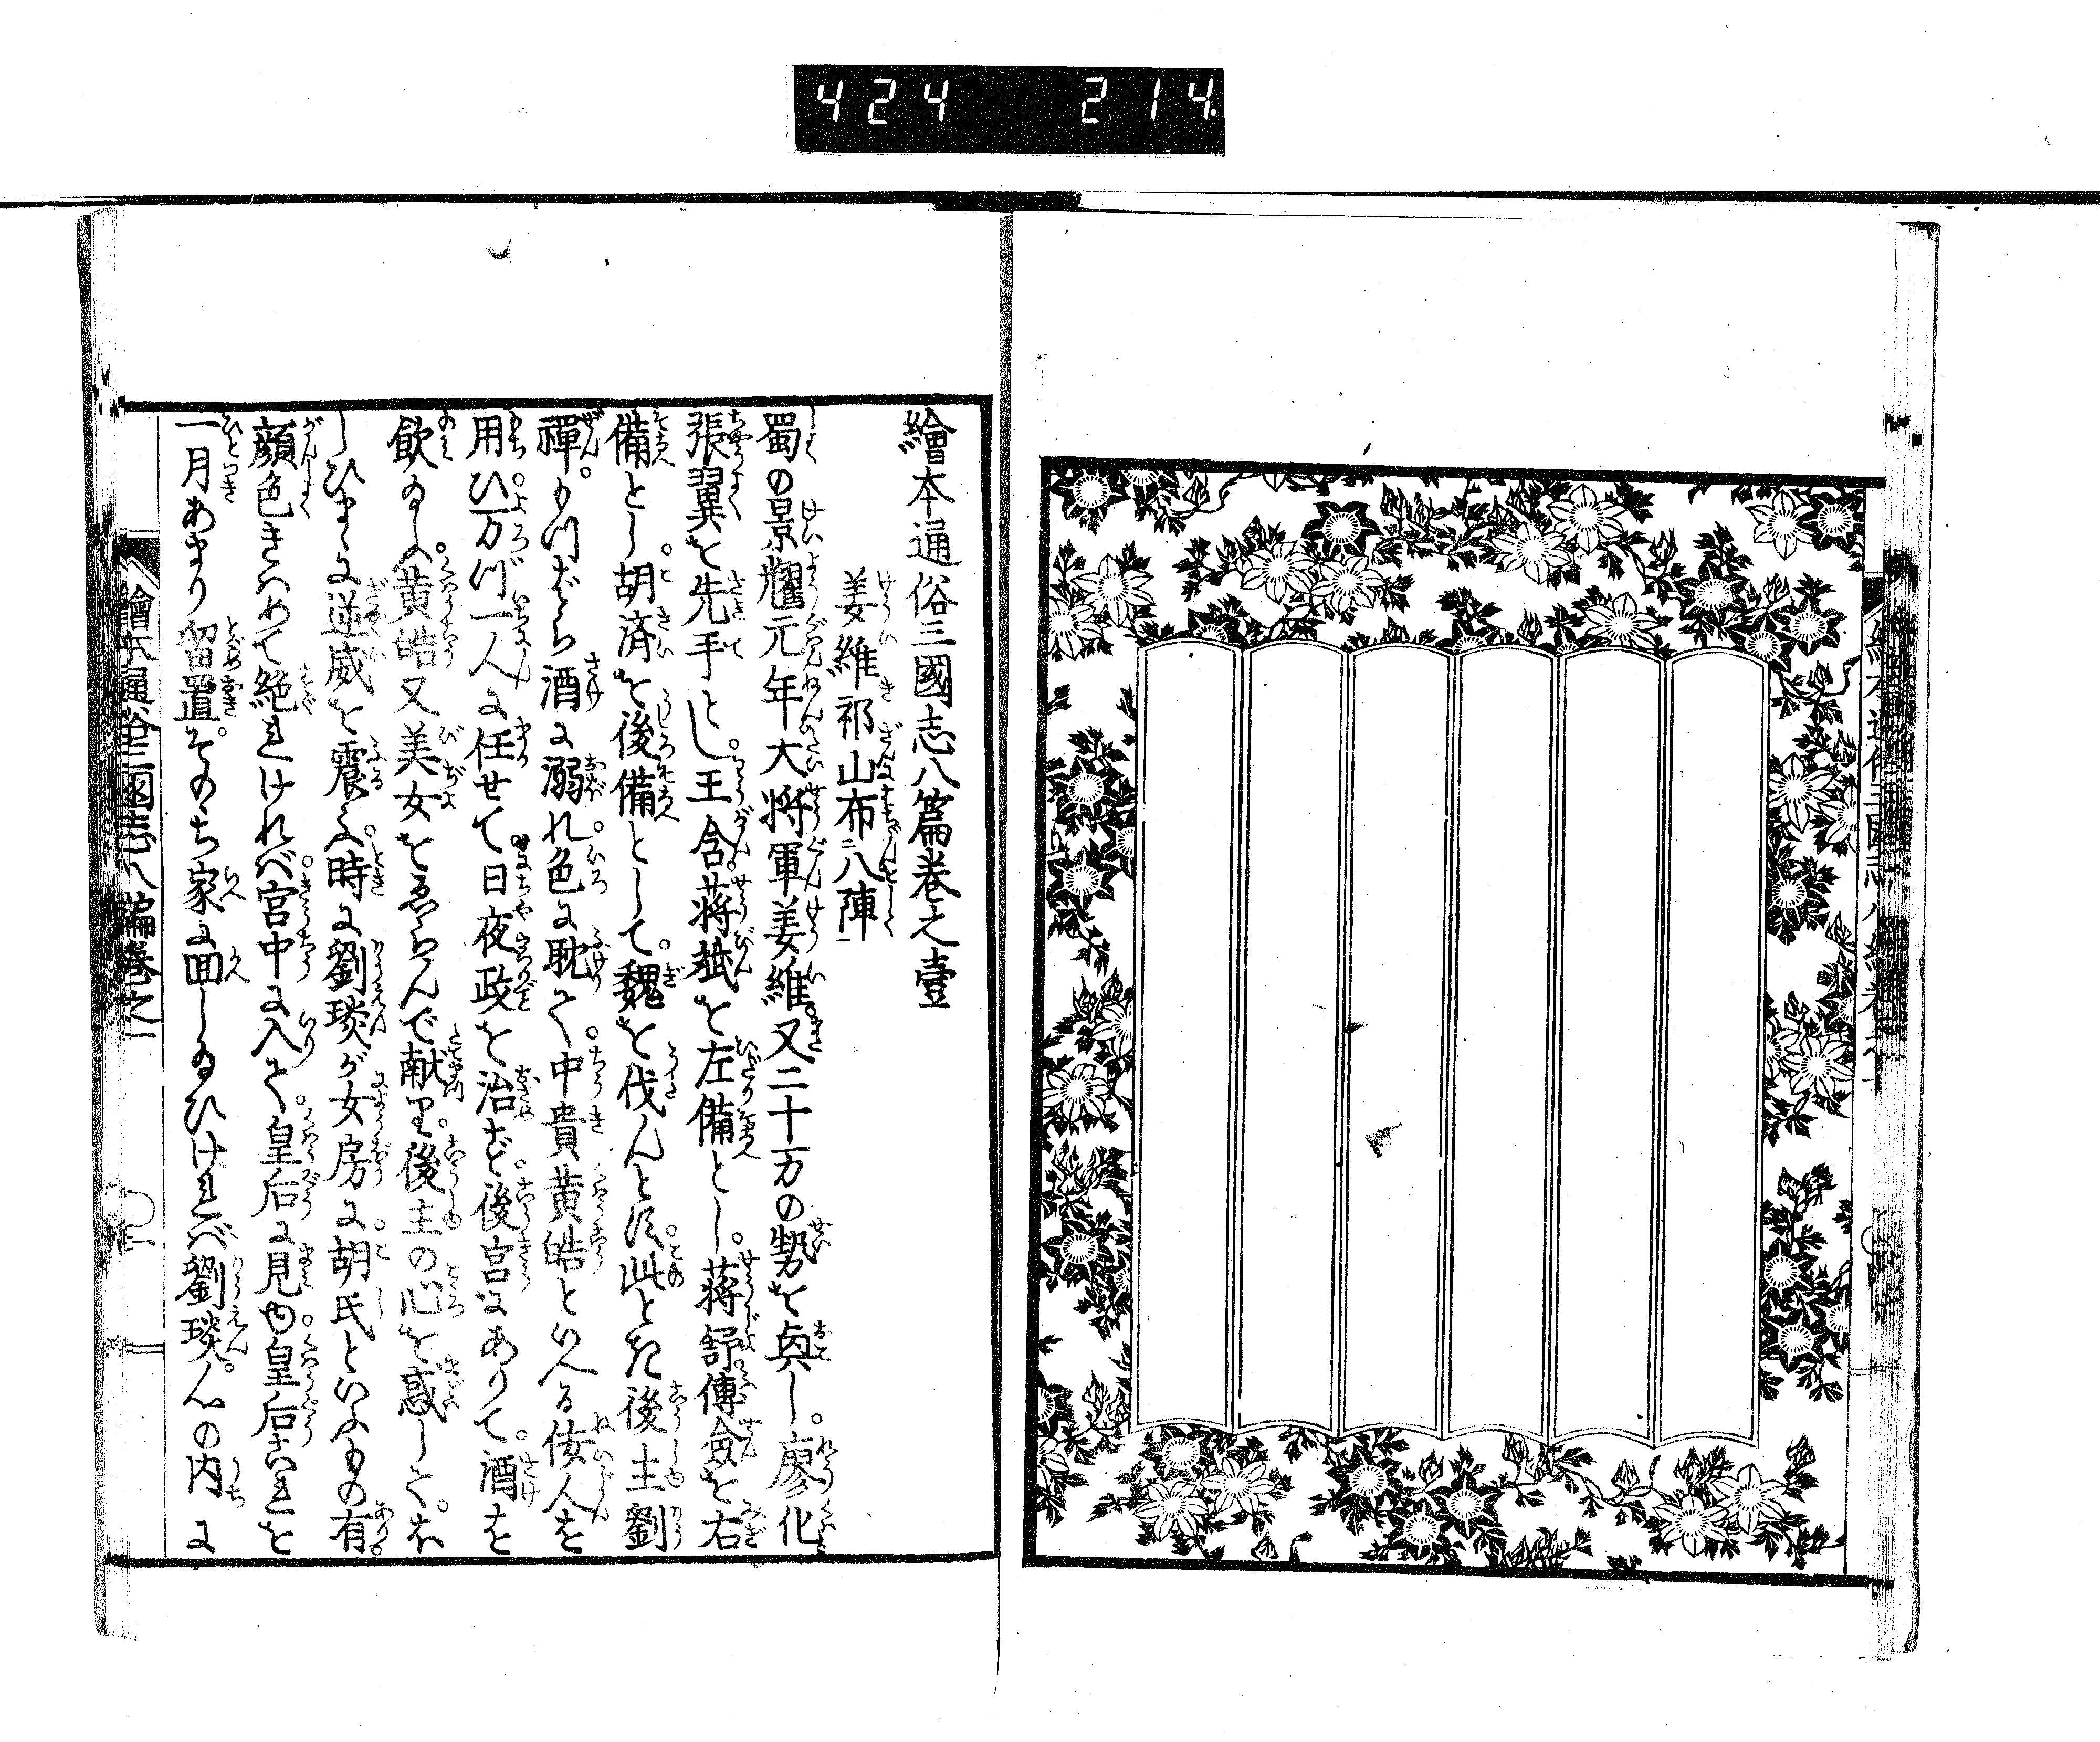 424 214.
繪本通俗三國志八篇巻之壹
姜維祁山布二八陣一
蜀の景耀元年大将軍姜維。又二十万の勢を起し。廖化
張翼を先手とし。王含。蒋斌を左備とし。蒋舒。傅僉を右
備とし。胡済を後備として。魏を伐んとす。此とき後主劉
禪。もつぱら酒に溺れ。色に耽て。中貴黄皓といへる佞人を
用ひ。万づ一人に任せて。日夜政を治ず。後宮にありて。酒を
飲ゐしが。黄皓又美女をゑらんで献り。後主の心を惑して。ほ
しひまゝに逆威を震ふ。時に劉琰が女房に。胡氏といふもの有。
顔色きはめて絶れければ。宮中に入て。皇后に見ゆ。皇后これを
一月あまり留置。そのゝち家に回しゐひければ。劉琰。心の内に
繪本通俗三國志八編巻之一